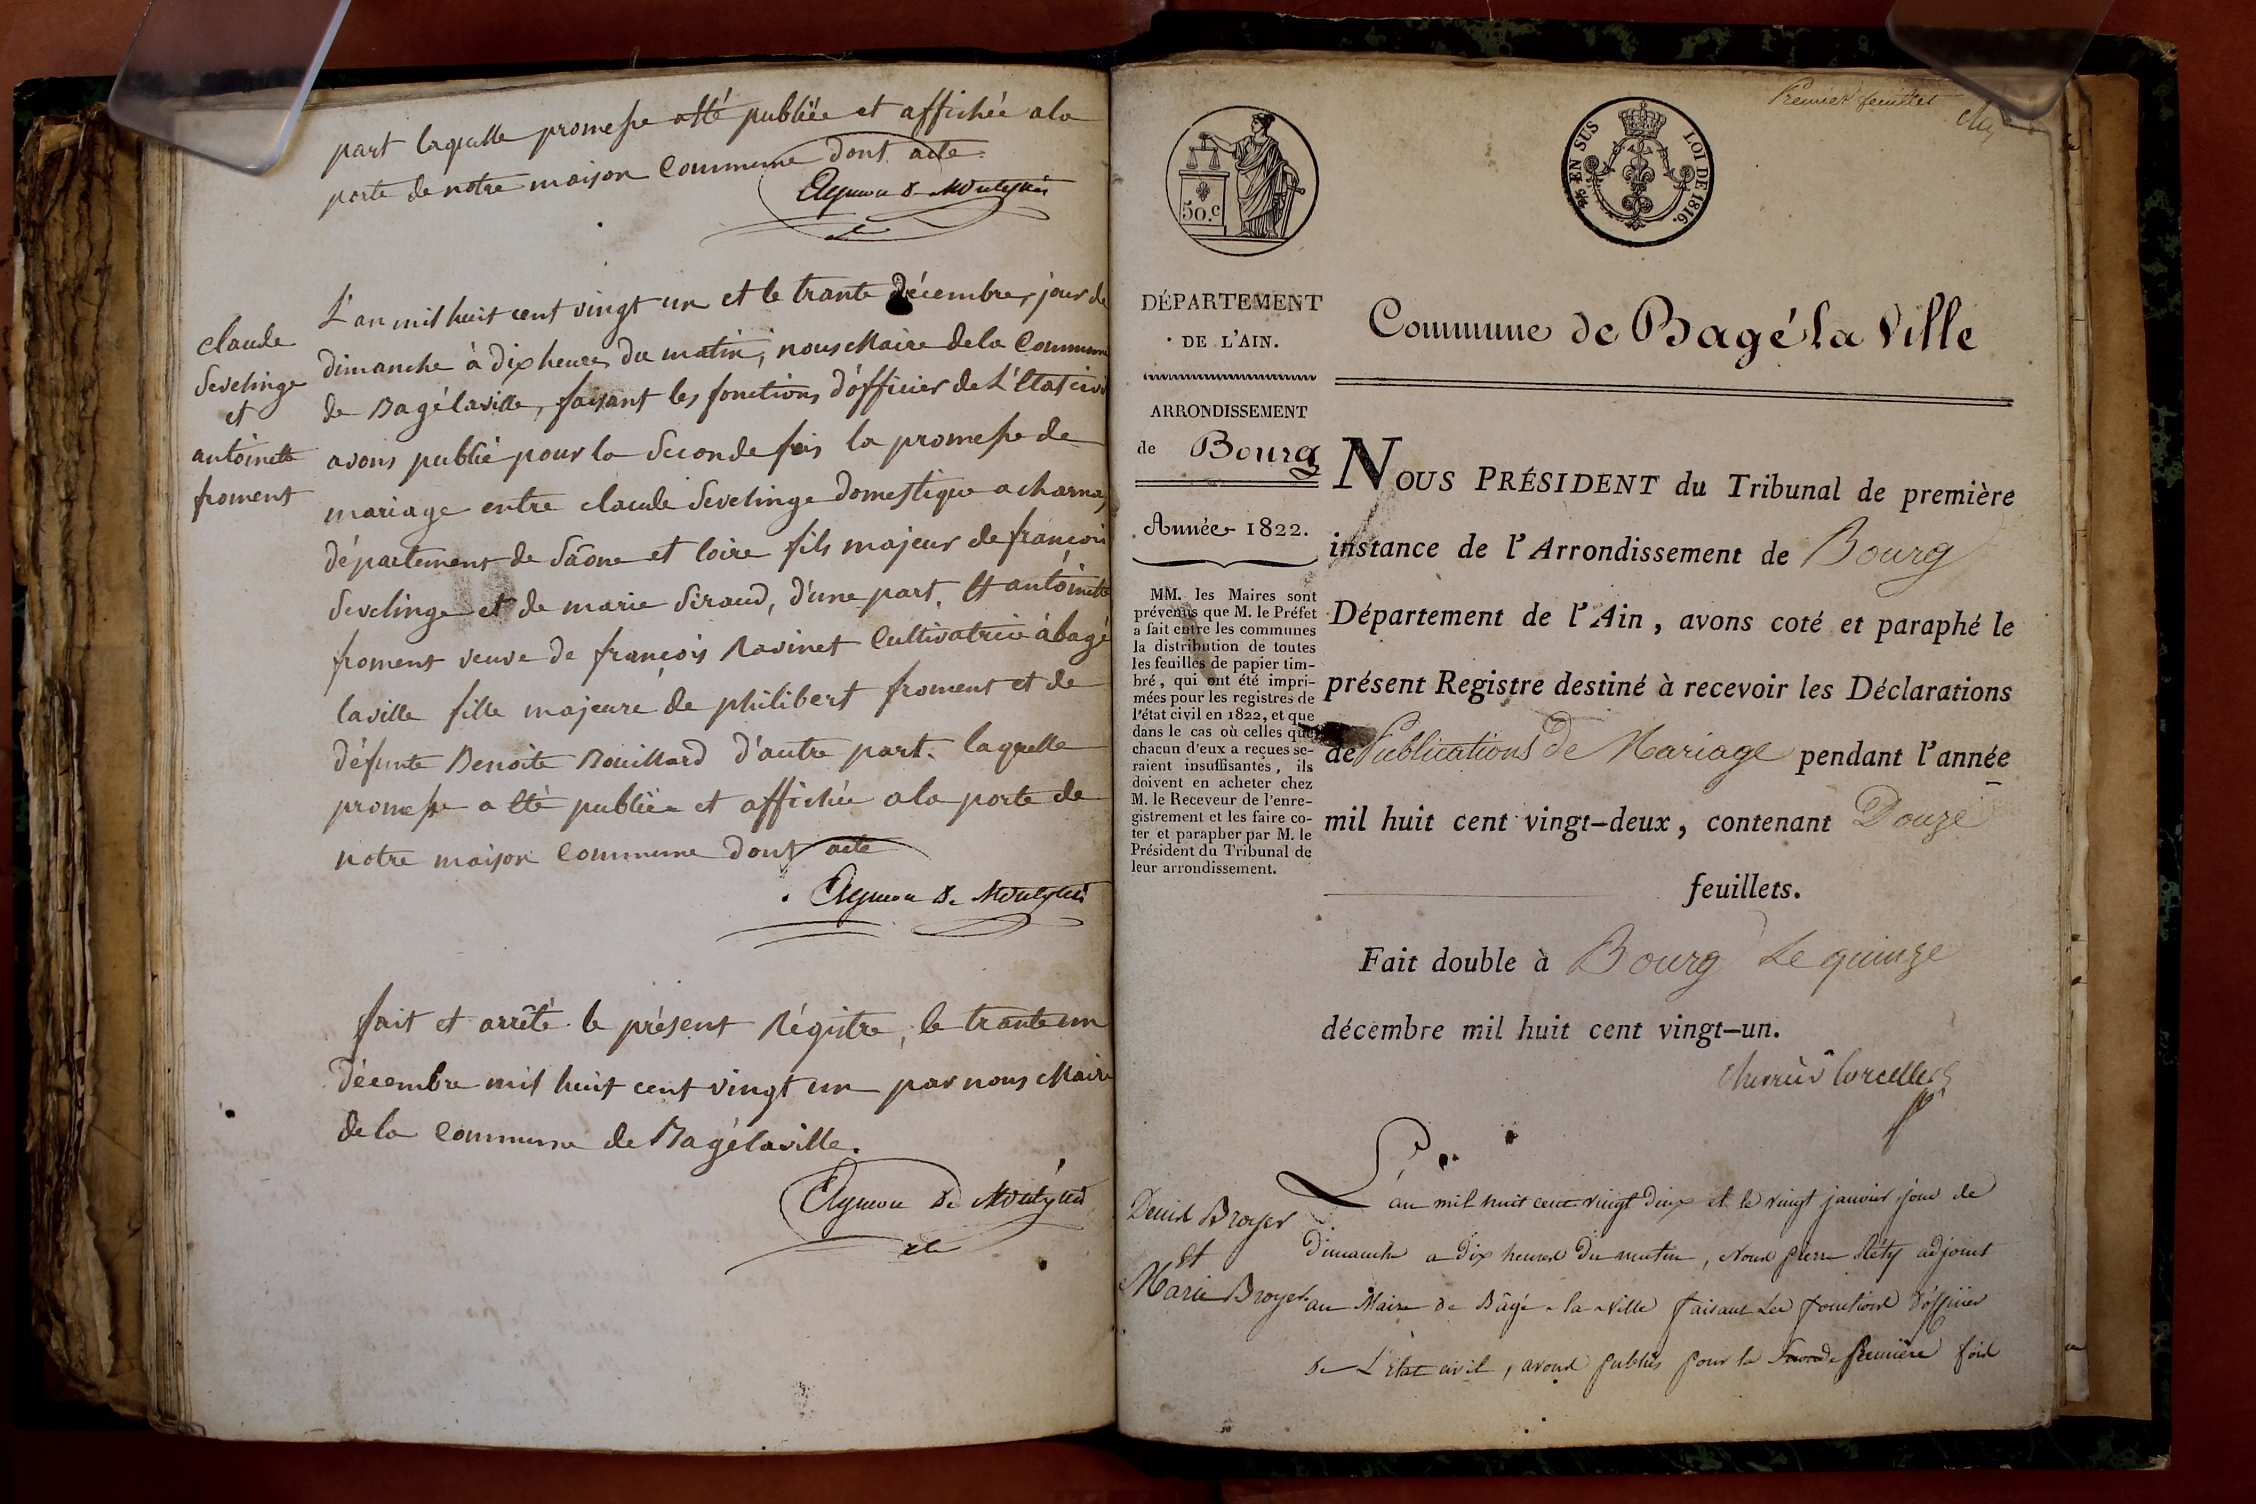 part laquelle promesse até publiée et affichée a la
porte de notre maison Commune dont acte.
Aymon De Montepin
claude
Sevelinge
et
antoinette
froment
L'an mil huit cent vingt un et le trante décembre, jour de
dimanche à dix heures du matin, nous Maire de la Commune
de Bagélaville, faisant les fonctions d'officier de L'Etat civil
avons publié pour la Seconde fois la promesse de
mariage entre claude Sevelinge domestique a charnay
département de Sâone et loire fils majeur de françois
Sevelinge et de marie Siraud, d'une part, Et antoinette
froment veuve de françois Ravinet Cultivatrice à bagé
laville fille majeure de philibert froment et de
défunte Benoite Bouillard d'autre part. laquelle
promesse a Eté publiée et affichée a la porte de
notre maison Commune dont acte
Aymon De Montepin
fait et arrêté le présent Régistre, le trante un
décembre mil huit cent vingt un par nous Maire
de la Commune de Bagélaville.
Aymon De Montepin
Premier feuillet
50.c
EN SUS LOI DE 1816.
DÉPARTEMENT
DE L'AIN.
ARRONDISSEMENT
de Bourg
Année 1822.
MM. les Maires sont
prévenus que M. le Préfet
a fait entre les communes
la distribution de toutes
les feuilles de papier tim-
bré, qui ont été impri-
mées pour les registres de
l'état civil en 1822, et que
dans le cas où celles que
chacun d'eux a reçues se-
raient insuffisantes, ils
doivent en acheter chez
M. le Receveur de l'enre-
gistrement et les faire co-
ter et parapher par M. le
Président du Tribunal de
leur arrondissement.
Commune de Bagé la Ville
NOUS PRÉSIDENT du Tribunal de première
instance de l'Arrondissement de Bourg
Département de l'Ain, avons coté et paraphé le
présent Registre destiné à recevoir les Déclarations
de Publications De Mariage pendant l'année
mil huit cent vingt-deux, contenant Douze
feuillets.
Fait double à Bourg Le quinze
décembre mil huit cent vingt-un.
Denis Broyer
Et
Marie Broyer
L'an mil huit cent vingt Deux et le vingt janvier jour de
Dimanche a Dix heures Du matin, Nous pierre adjoint
au Maire De Bâgé-la-Ville faisant Les fonctions D'officier
De L'état civil, avons publiés pour la Seconde Première fois